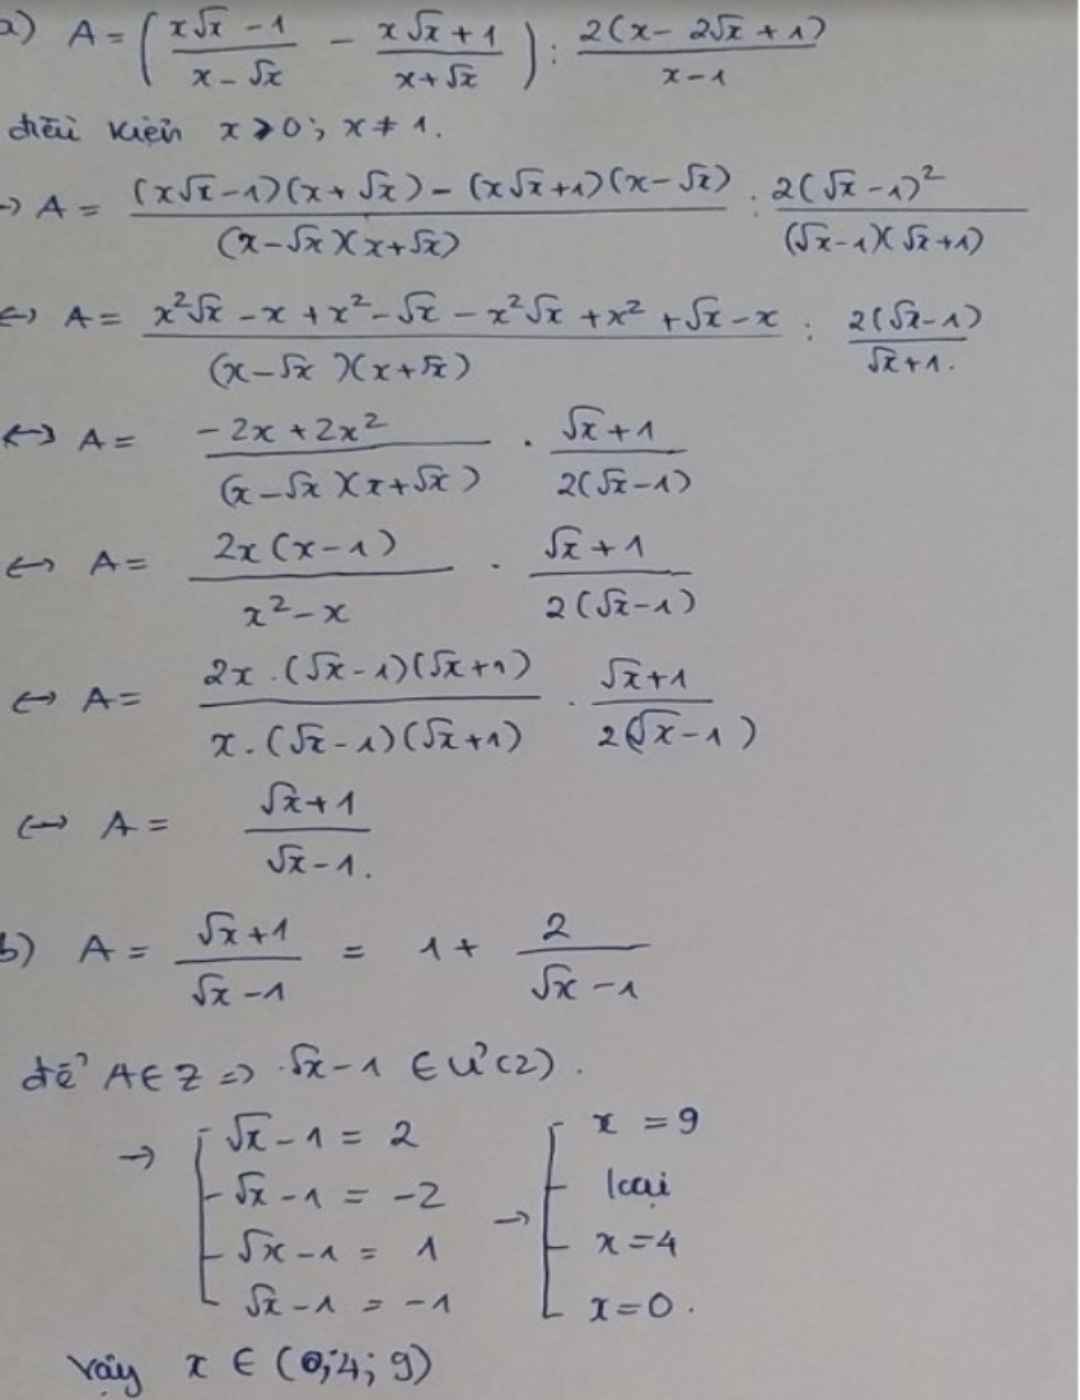 a) A = ( (x√x - 1)/(x - √x) - (x√x + 1)/(x + √x) ) : 2(x - 2√x + 1)/(x - 1)
điều kiện x > 0; x ≠ 1.
→ A = ((x√x - 1)(x + √x) - (x√x + 1)(x - √x))/((x - √x)(x + √x)) : 2(√x - 1)²/((√x - 1)(√x + 1))
↔ A = (x²√x - x + x² - √x - x²√x + x² + √x - x)/((x - √x)(x + √x)) : 2(√x - 1)/(√x + 1).
↔ A = (-2x + 2x²)/((x - √x)(x + √x)) . (√x + 1)/(2(√x - 1))
↔ A = 2x(x - 1)/(x² - x) . (√x + 1)/(2(√x - 1))
↔ A = 2x.(√x - 1)(√x + 1)/(x.(√x - 1)(√x + 1)) . (√x + 1)/(2(√x - 1))
↔ A = (√x + 1)/(√x - 1).
b) A = (√x + 1)/(√x - 1) = 1 + 2/(√x - 1)
để A ∈ Z => √x - 1 ∈ Ư(2).
→ [ √x - 1 = 2 → [ x = 9
√x - 1 = -2 loại
√x - 1 = 1 x = 4
√x - 1 = -1 x = 0.
vậy x ∈ (0; 4; 9)